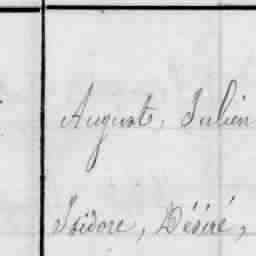 Auguste, Julien
Isidore, Désiré,